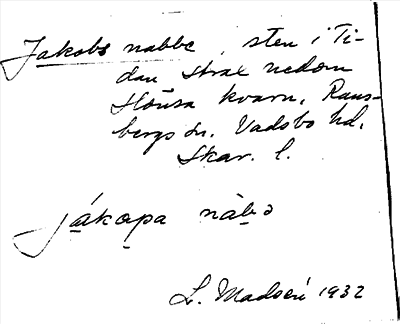 Jakobs nabbe, sten i Ti-
dan strax nedom
Hönsa kvarn, Rans-
bergs sn. Vadsbo hd,
Skar. l.
jákapa nàbə
L. Madsén 1932